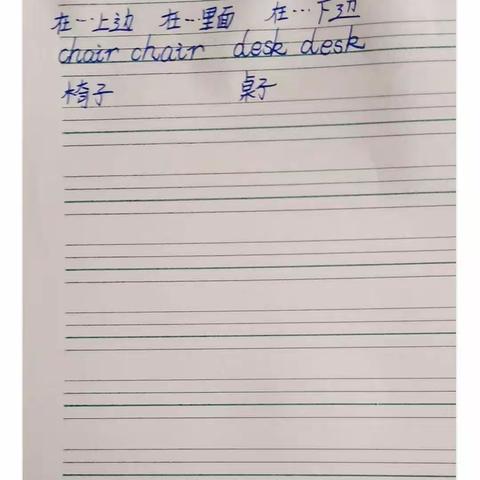 在…上边 在…里面 在…下边
chair chair desk desk
椅子 桌子